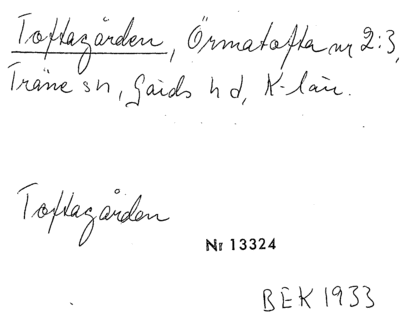 Toftagården, Örmatofta nr 2:3,
Träne sn, Gärds hd, K-län.
Toftagården
Nr 13324
BEK 1933